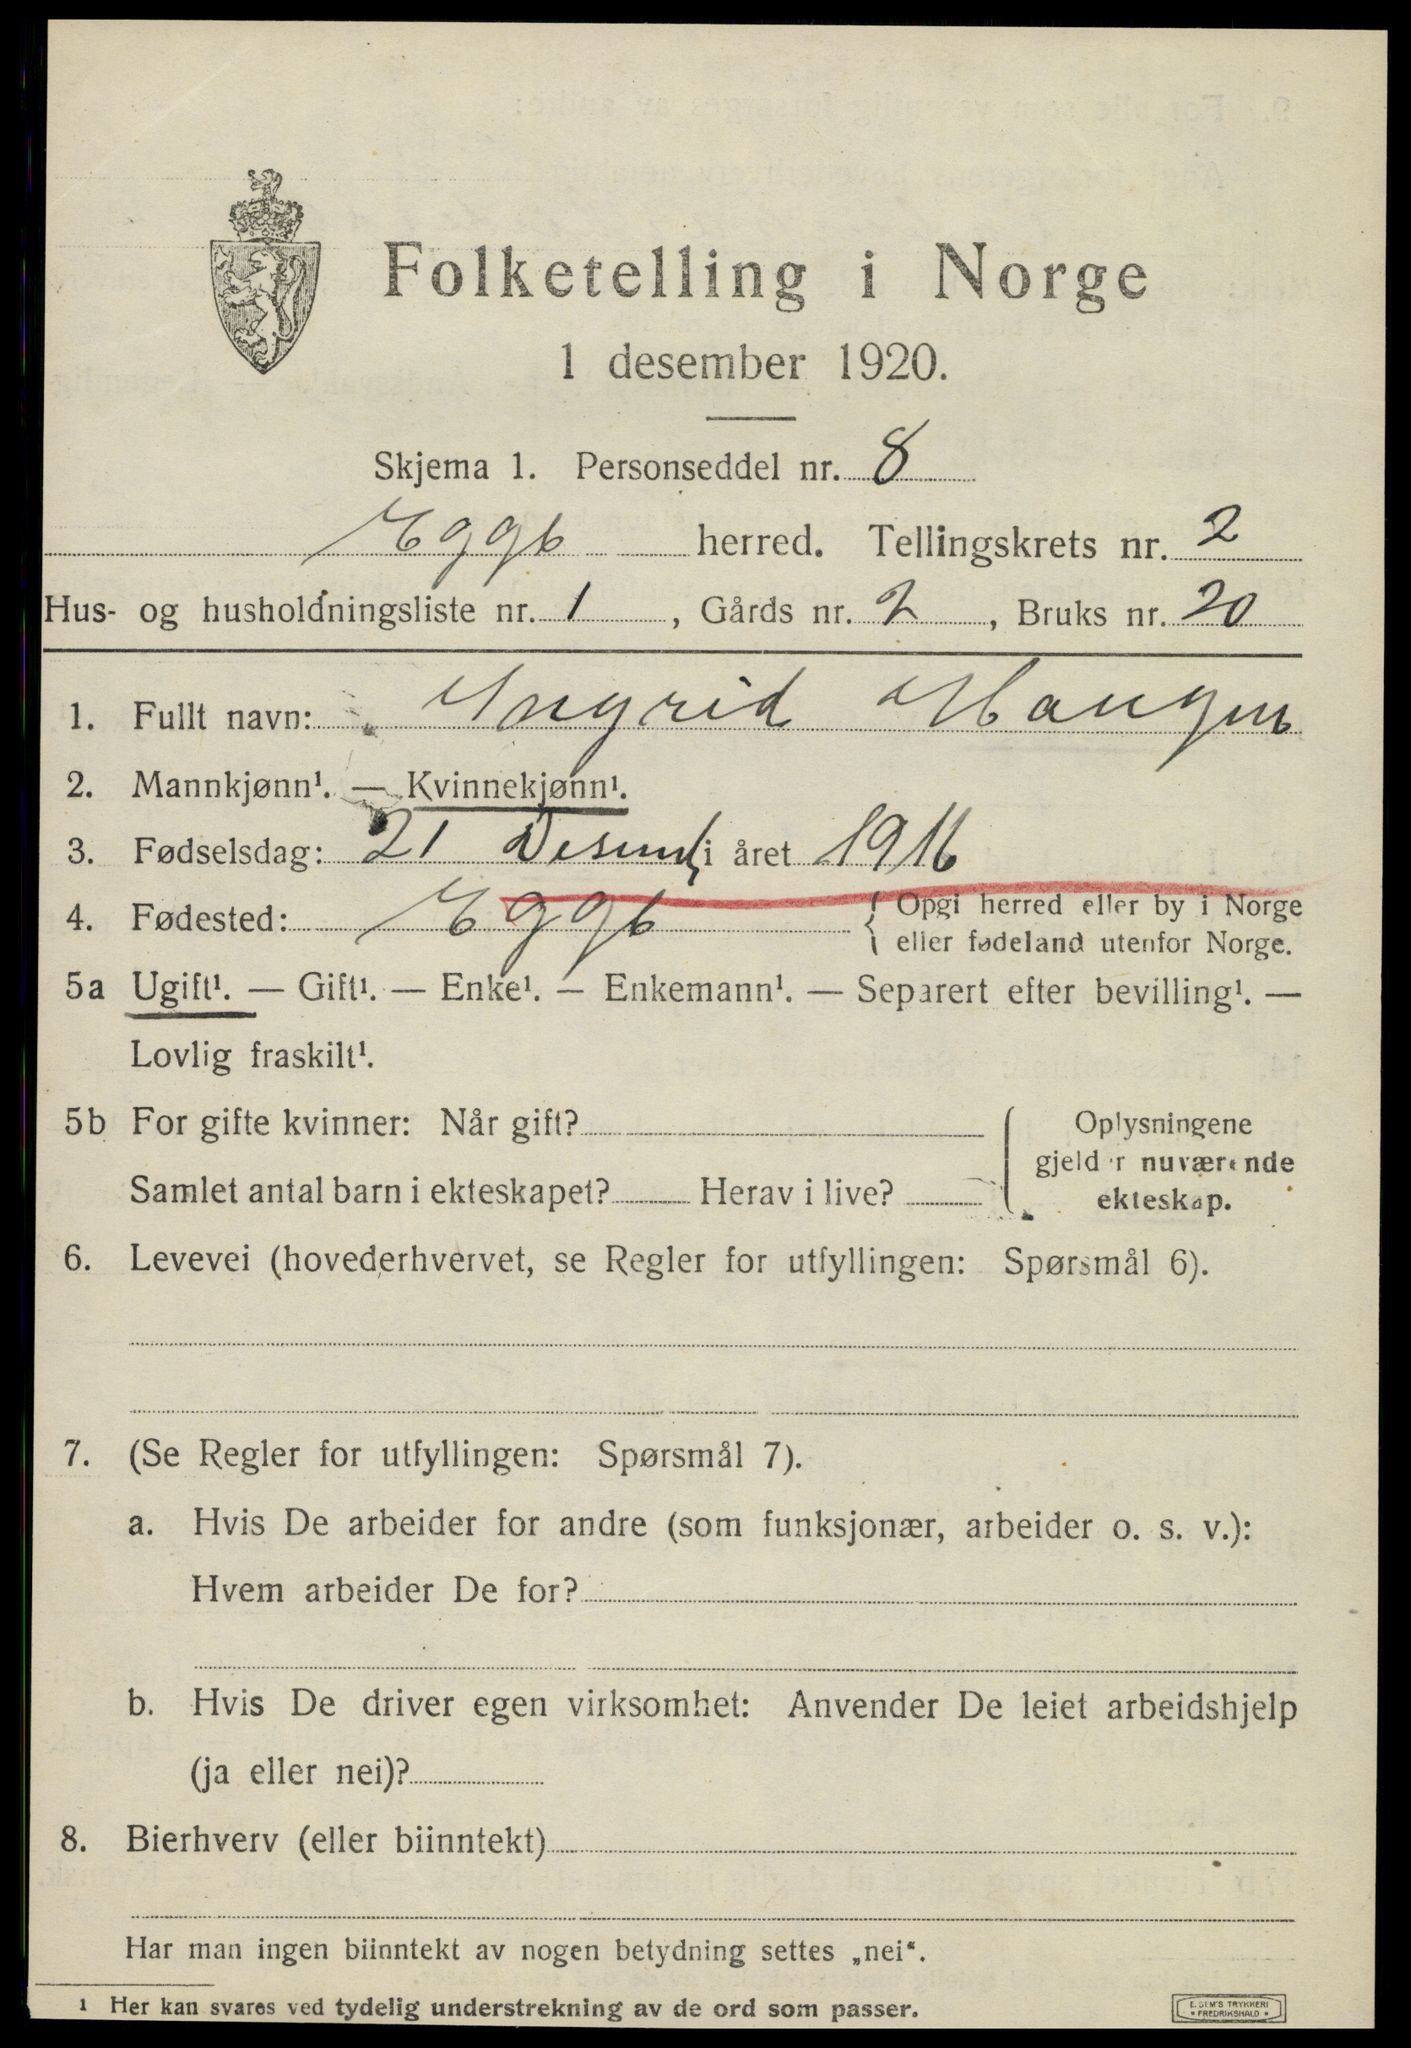 Folketelling i Norge
1 desember 1920.
Skjema 1. Personseddel nr. 8
Egge herred. Tellingskrets nr. 2
Hus- og husholdningsliste nr. 1, Gårds nr. 2, Bruks nr. 20
1. Fullt navn: Ingrid Haugen
2. Mannkjønn¹. — Kvinnekjønn¹.
3. Fødselsdag: 21 i året 1916
4. Fødested: Egge { Opgi herred eller by i Norge
eller fødeland utenfor Norge.
5a Ugift¹. — Gift¹. — Enke¹. — Enkemann¹. — Separert efter bevilling¹. —
Lovlig fraskilt¹.
5b For gifte kvinner: Når gift?
Samlet antal barn i ekteskapet? Herav i live?
Oplysningene
gjelder nuværende
ekteskap.
6. Levevei (hovederhvervet, se Regler for utfyllingen: Spørsmål 6).
7. (Se Regler for utfyllingen: Spørsmål 7).
a. Hvis De arbeider for andre (som funksjonær, arbeider o. s. v.):
Hvem arbeider De for?
b. Hvis De driver egen virksomhet: Anvender De leiet arbeidshjelp
(ja eller nei)?
8. Bierhverv (eller biinntekt)
Har man ingen biinntekt av nogen betydning settes „nei“.
1 Her kan svares ved tydelig understrekning av de ord som passer.
E. SEM'S TRYKKERI
• FREDRIKSHALD •